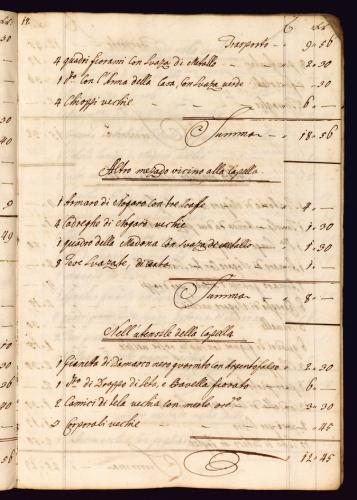 18.
Trasporto - 9-56
4 quadri fiorami con Suaza di Metallo - 2-30
1 do con l'Arma della Casa, con Suaza verde - -30
4 Chioppi vechie - 6-
Summa - 18-56
Altro mezado vicino alla Capella
1 Armaro di Nogara con tre 4-
4 Cadreghe di Nogara vechie - 1-30
1 quadro della Madona con Suaza di metallo 1-30
8 Suazate, di carta 1-
Summa - 8-
Nell'utensile della Capella
1 Pianeta di Damasco nero guarnito con argento falso 2-30
1 do di Drappo di seta, e Bavella fiorato - 6-
2 Camici di tela vechia con merlo 3-30
Corporali vechie - -45
12-45